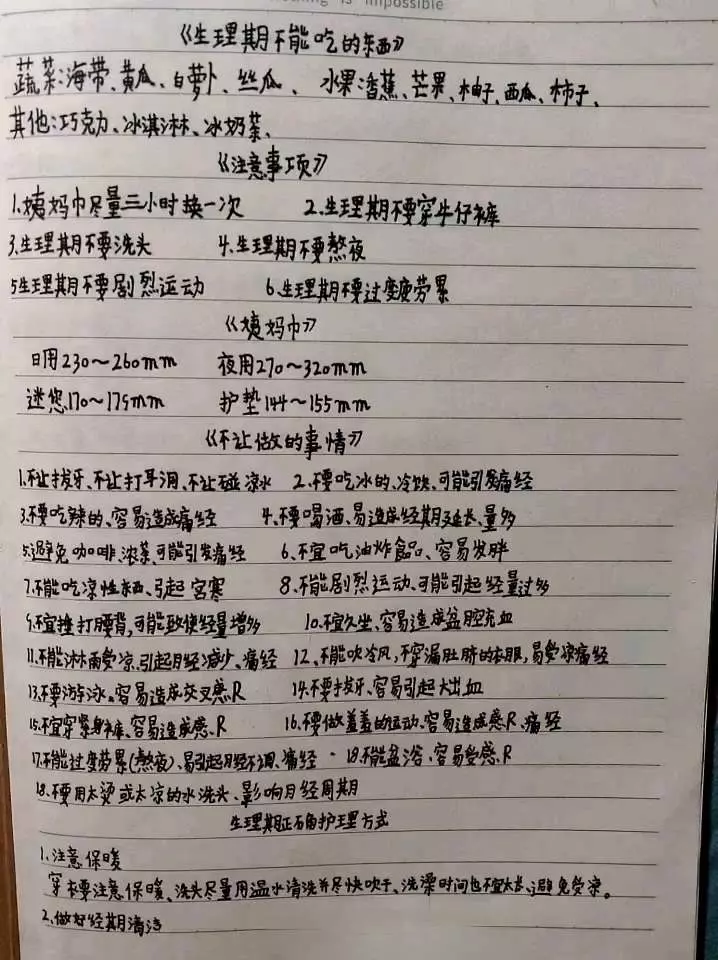 is impossible
《生理期不能吃的东西》
蔬菜:海带、黄瓜、白萝卜、丝瓜、 水果:香蕉、芒果、柚子、西瓜、柿子、
其他:巧克力、冰淇淋、冰奶茶、
《注意事项》
1.姨妈巾尽量三小时换一次 2.生理期不要穿牛仔裤
3.生理期不要洗头 4.生理期不要熬夜
5生理期不要剧烈运动 6.生理期不要过度疲劳累
《姨妈巾》
日用230～260mm 夜用270～320mm
迷您170～175mm 护垫144～155mm
《不让做的事情》
1.不让拔牙、不让打耳洞、不让碰凉水 2.不要吃冰的、冷饮、可能引发痛经
3.不要吃辣的、容易造成痛经 4.不要喝酒、易造成经期延长、量多
5.避免咖啡、浓茶、可能引发痛经 6.不宜吃油炸食品、容易发胖
7.不能吃凉性东西、引起宫寒 8.不能剧烈运动、可能引起经量过多
9.不宜捶打腰背,可能致使经量增多 10.不宜久坐、容易造成盆腔充血
11.不能淋雨受凉,引起月经减少、痛经 12.不能吹冷风,不穿漏肚脐的衣服,易受凉痛经
13.不要游泳。容易造成交叉感R 14.不要拔牙、容易引起大出血
15.不宜穿紧身裤、容易造成感R 16.不要做羞羞的运动、容易造成感R、痛经
17.不能过度劳累(熬夜)、易引起月经不调、痛经 18.不能盆浴、容易受感R
18.不要用太烫或太凉的水洗头、影响月经周期
生理期正确护理方式
1.注意保暖
穿衣要注意保暖、洗头尽量用温水清洗并尽快吹干、洗澡时间也不宜太长、避免受凉。
2.做好经期清洁